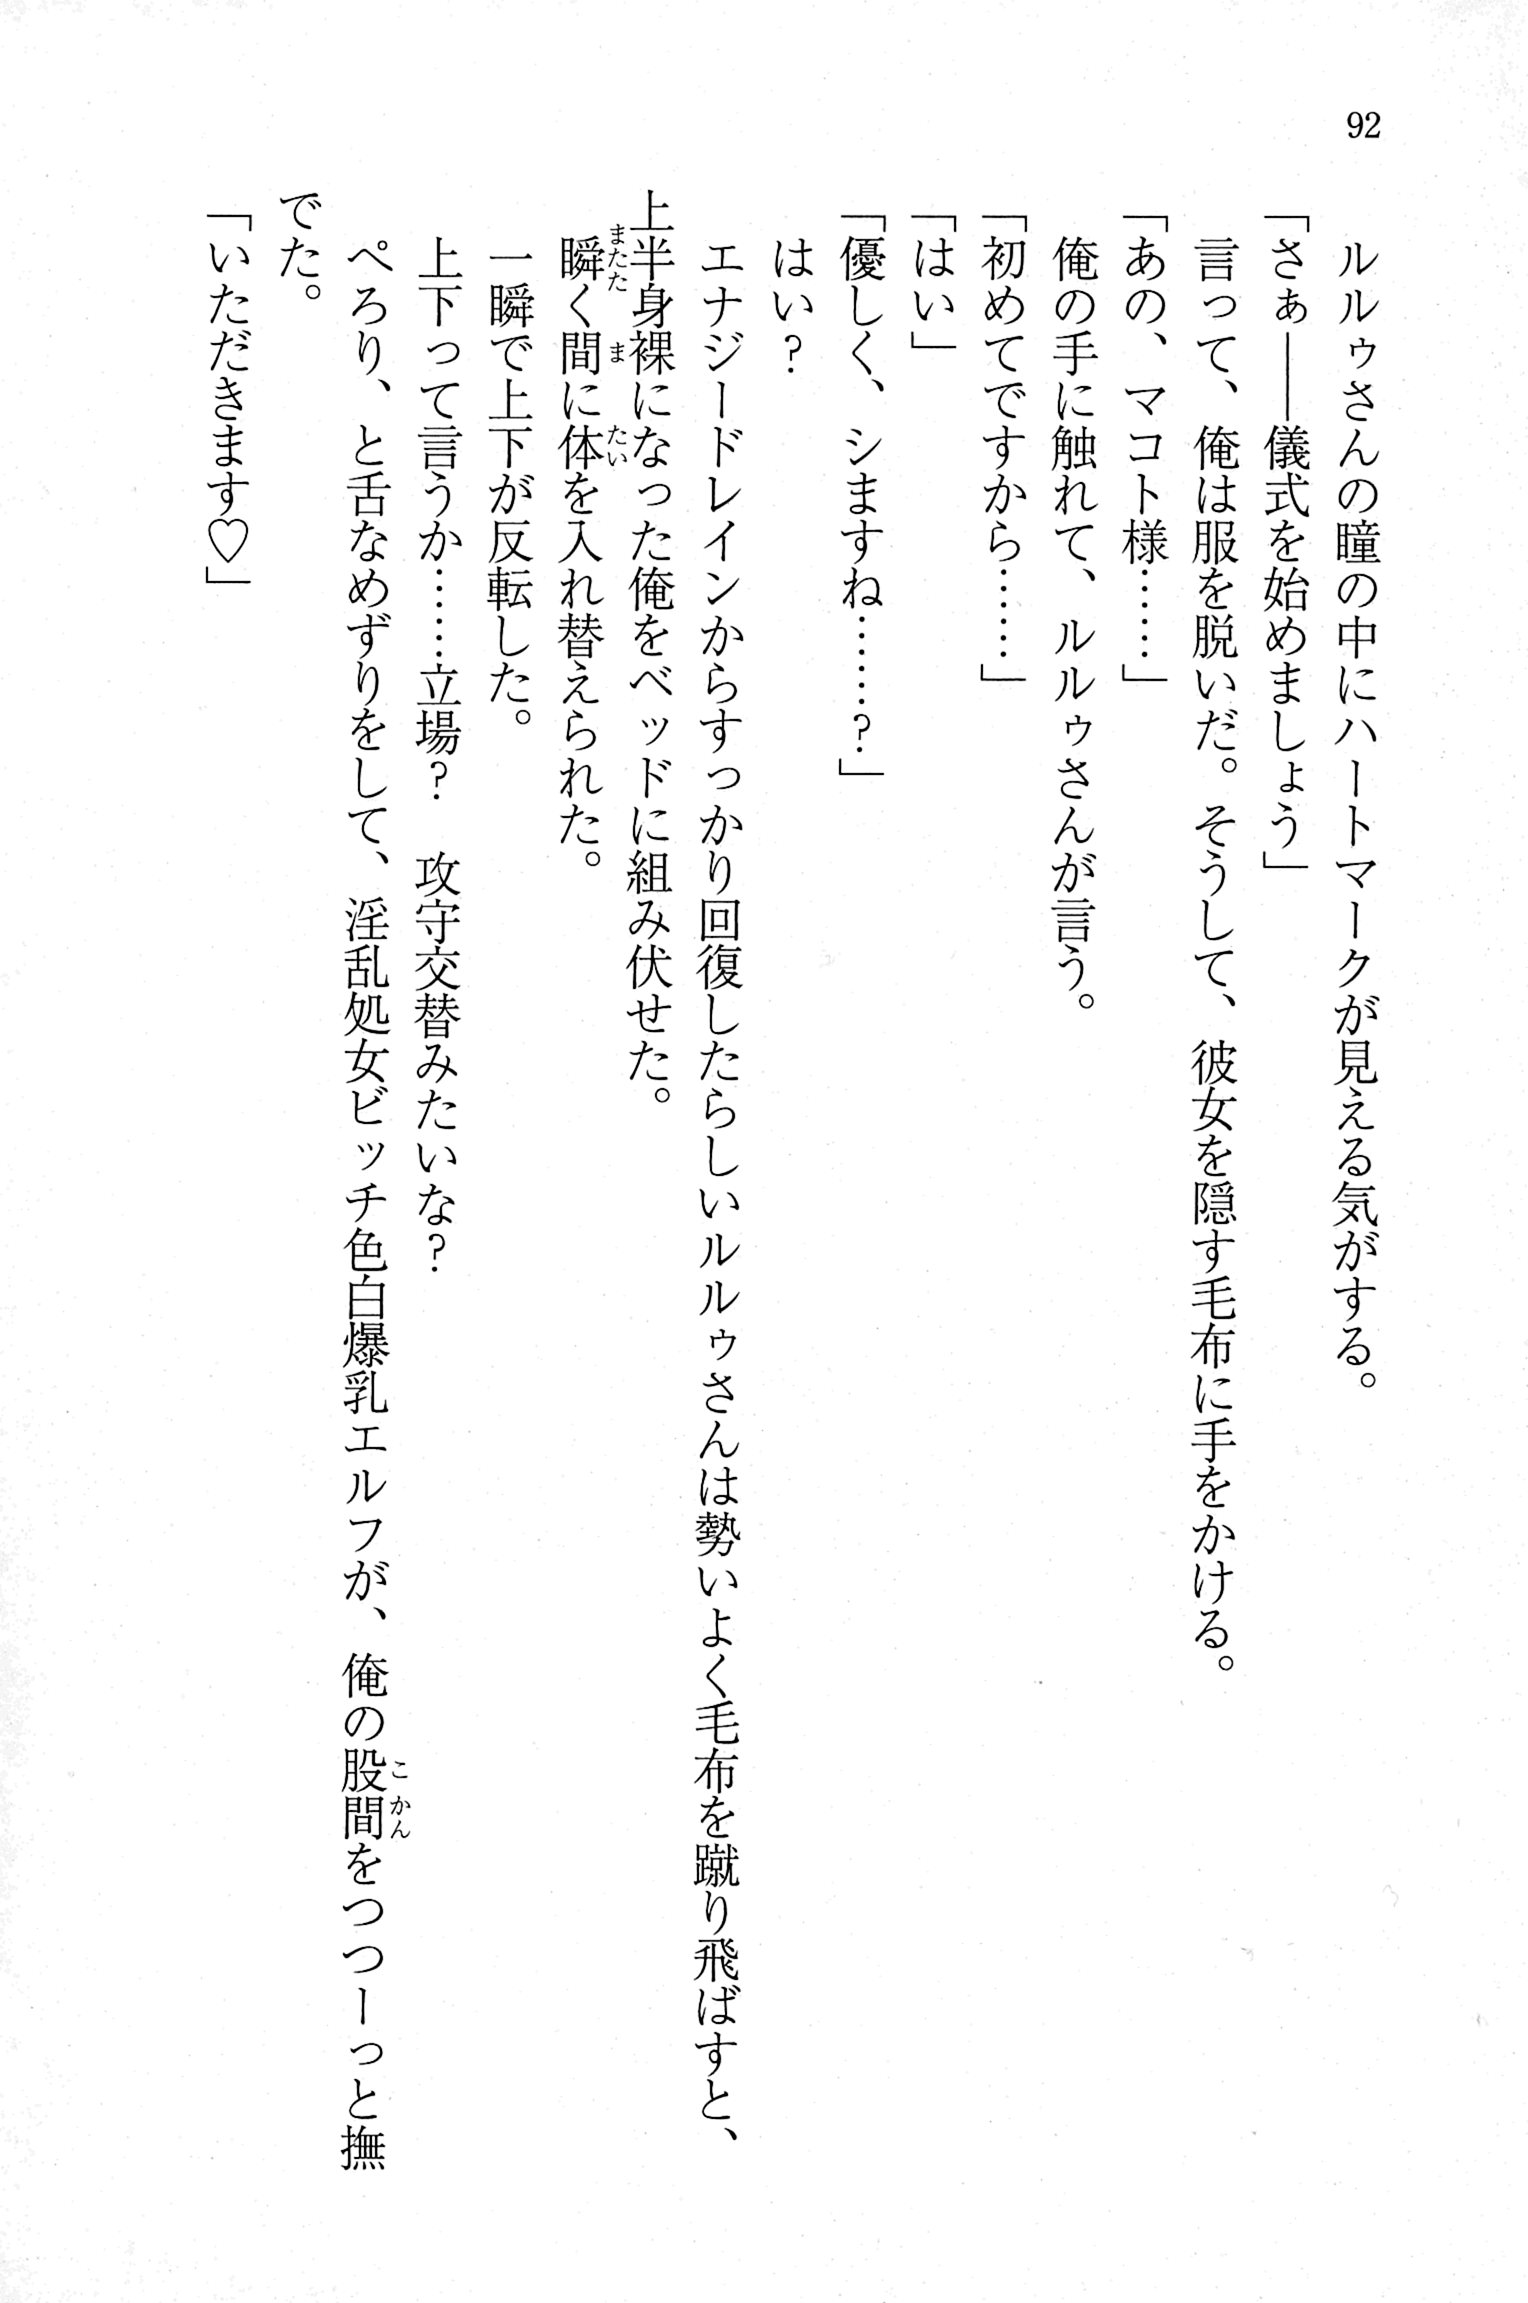 92
ルルゥさんの瞳の中にハートマークが見える気がする。
「さぁ――儀式を始めましょう」
言って、俺は服を脱いだ。そうして、彼女を隠す毛布に手をかける。
「あの、マコト様……」
俺の手に触れて、ルルゥさんが言う。
「初めてですから……」
「はい」
「優しく、シますね……?」
はい?
エナジードレインからすっかり回復したらしいルルゥさんは勢いよく毛布を蹴り飛ばすと、
上半身裸になった俺をベッドに組み伏せた。
瞬く間に体を入れ替えられた。
またた ま たい
一瞬で上下が反転した。
上下って言うか……立場? 攻守交替みたいな?
ぺろり、と舌なめずりをして、淫乱処女ビッチ色白爆乳エルフが、俺の股間をつつーっと撫
こかん
でた。
「いただきます♡」